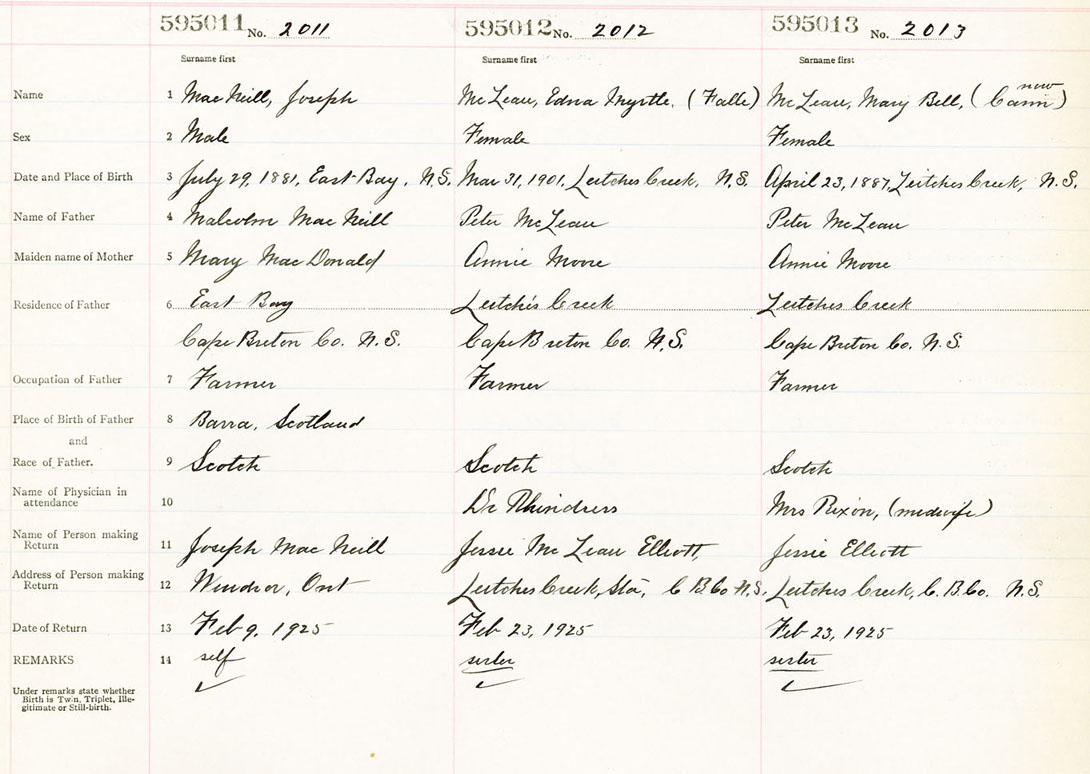 595011 No. 2011 595012 No. 2012 595013 No. 2013
Surname first Surname first Surname first
Name 1 MacNeill, Joseph McLean, Edna Myrtle. (Falle) McLean, Mary Bell, (now Cann)
Sex 2 Male Female Female
Date and Place of Birth 3 July 29, 1881, East Bay, N.S. Mar 31, 1901, Leitches Creek, N.S. April 23, 1887, Leitches Creek, N.S.
Name of Father 4 Malcolm MacNeill Peter McLean Peter McLean
Maiden name of Mother 5 Mary MacDonald Annie Moore Annie Moore
Residence of Father 6 East Bay Leitch's Creek Leitches Creek
Cape Breton Co. N.S. Cape Breton Co. N.S. Cape Breton Co. N.S.
Occupation of Father 7 Farmer Farmer Farmer
Place of Birth of Father 8 Barra, Scotland
and
Race of Father. 9 Scotch Scotch Scotch
Name of Physician in
attendance 10 Dr Rhindress Mrs Rixon, (midwife)
Name of Person making
Return 11 Joseph MacNeill Jessie McLean Elliott, Jessie Elliott
Address of Person making
Return 12 Windsor, Ont Leitches Creek, Sta, C B Co N.S. Leitches Creek, C.B.Co. N.S.
Date of Return 13 Feb 9, 1925 Feb 23, 1925 Feb 23, 1925
REMARKS 14 self sister sister
Under remarks state whether
Birth is Twin, Triplet, Ille-
gitimate or Still-birth.